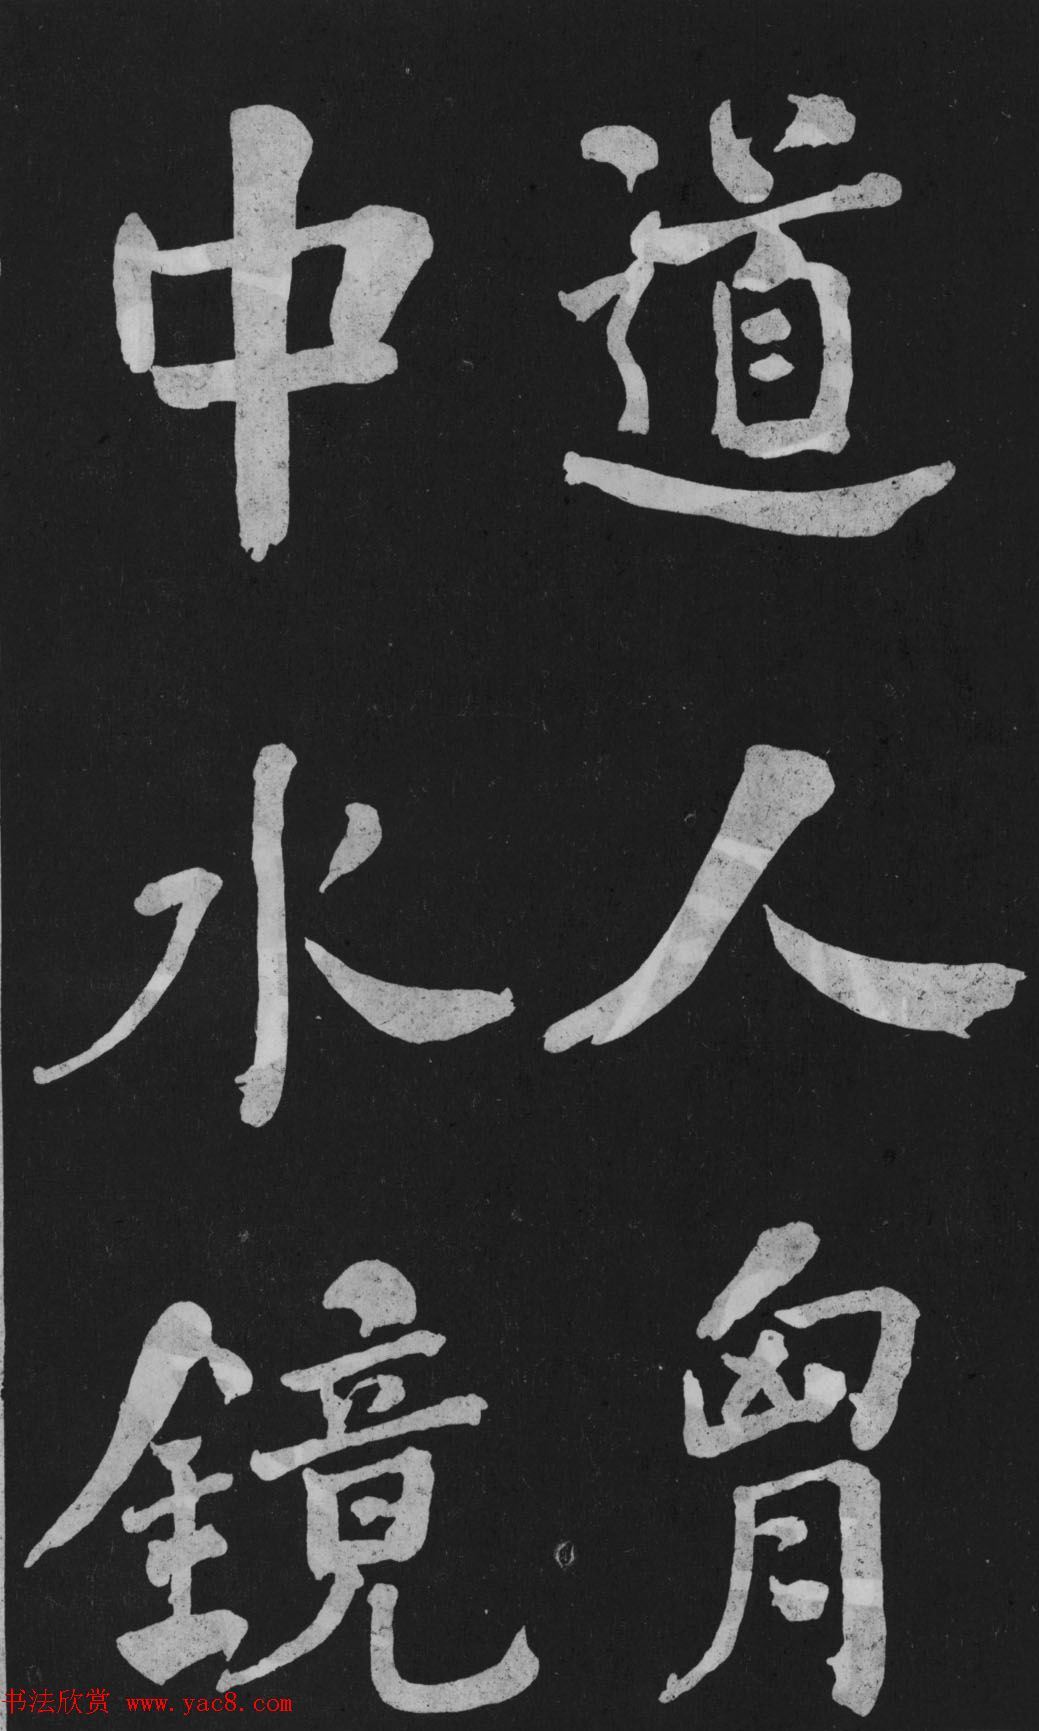 道人胷
中水鏡
书法欣赏 www.yac8.com